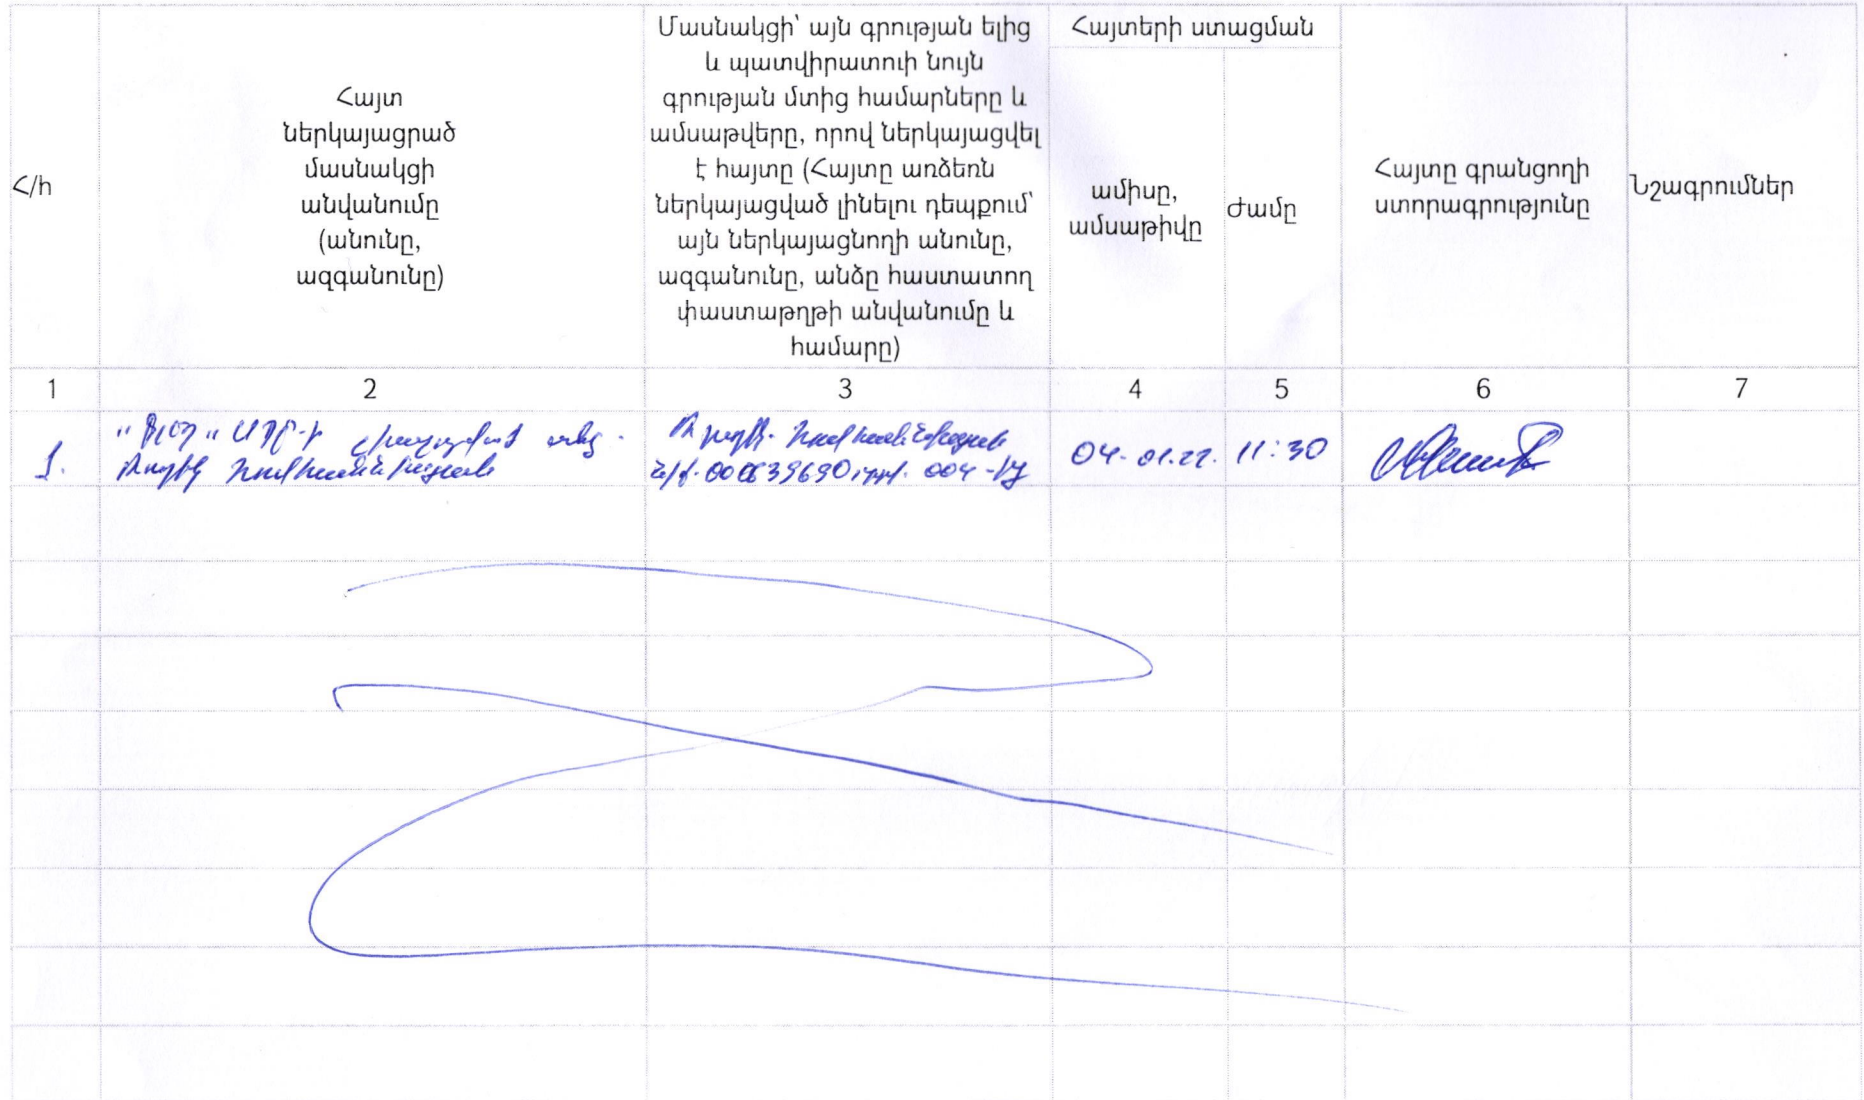 Հ/հ
Հայտ
ներկայացրած
մասնակցի
անվանումը
(անունը,
ազգանունը)
Մասնակցի՝ այն գրության ելից
և պատվիրատուի նույն
գրության մտից համարները և
ամսաթվերը, որով ներկայացվել
է հայտը (Հայտը առձեռն
ներկայացված լինելու դեպքում՝
այն ներկայացնողի անունը,
ազգանունը, անձը հաստատող
փաստաթղթի անվանումը և
համարը)
Հայտերի ստացման
ամիսը,
ամսաթիվը
ժամը
Հայտը գրանցողի
ստորագրությունը
Նշագրումներ
1 2 3 4 5 6 7
1.
ՍՊԸ-ի
Հովհաննիսյան
Հովհաննիսյան
04.01.22. 11:30